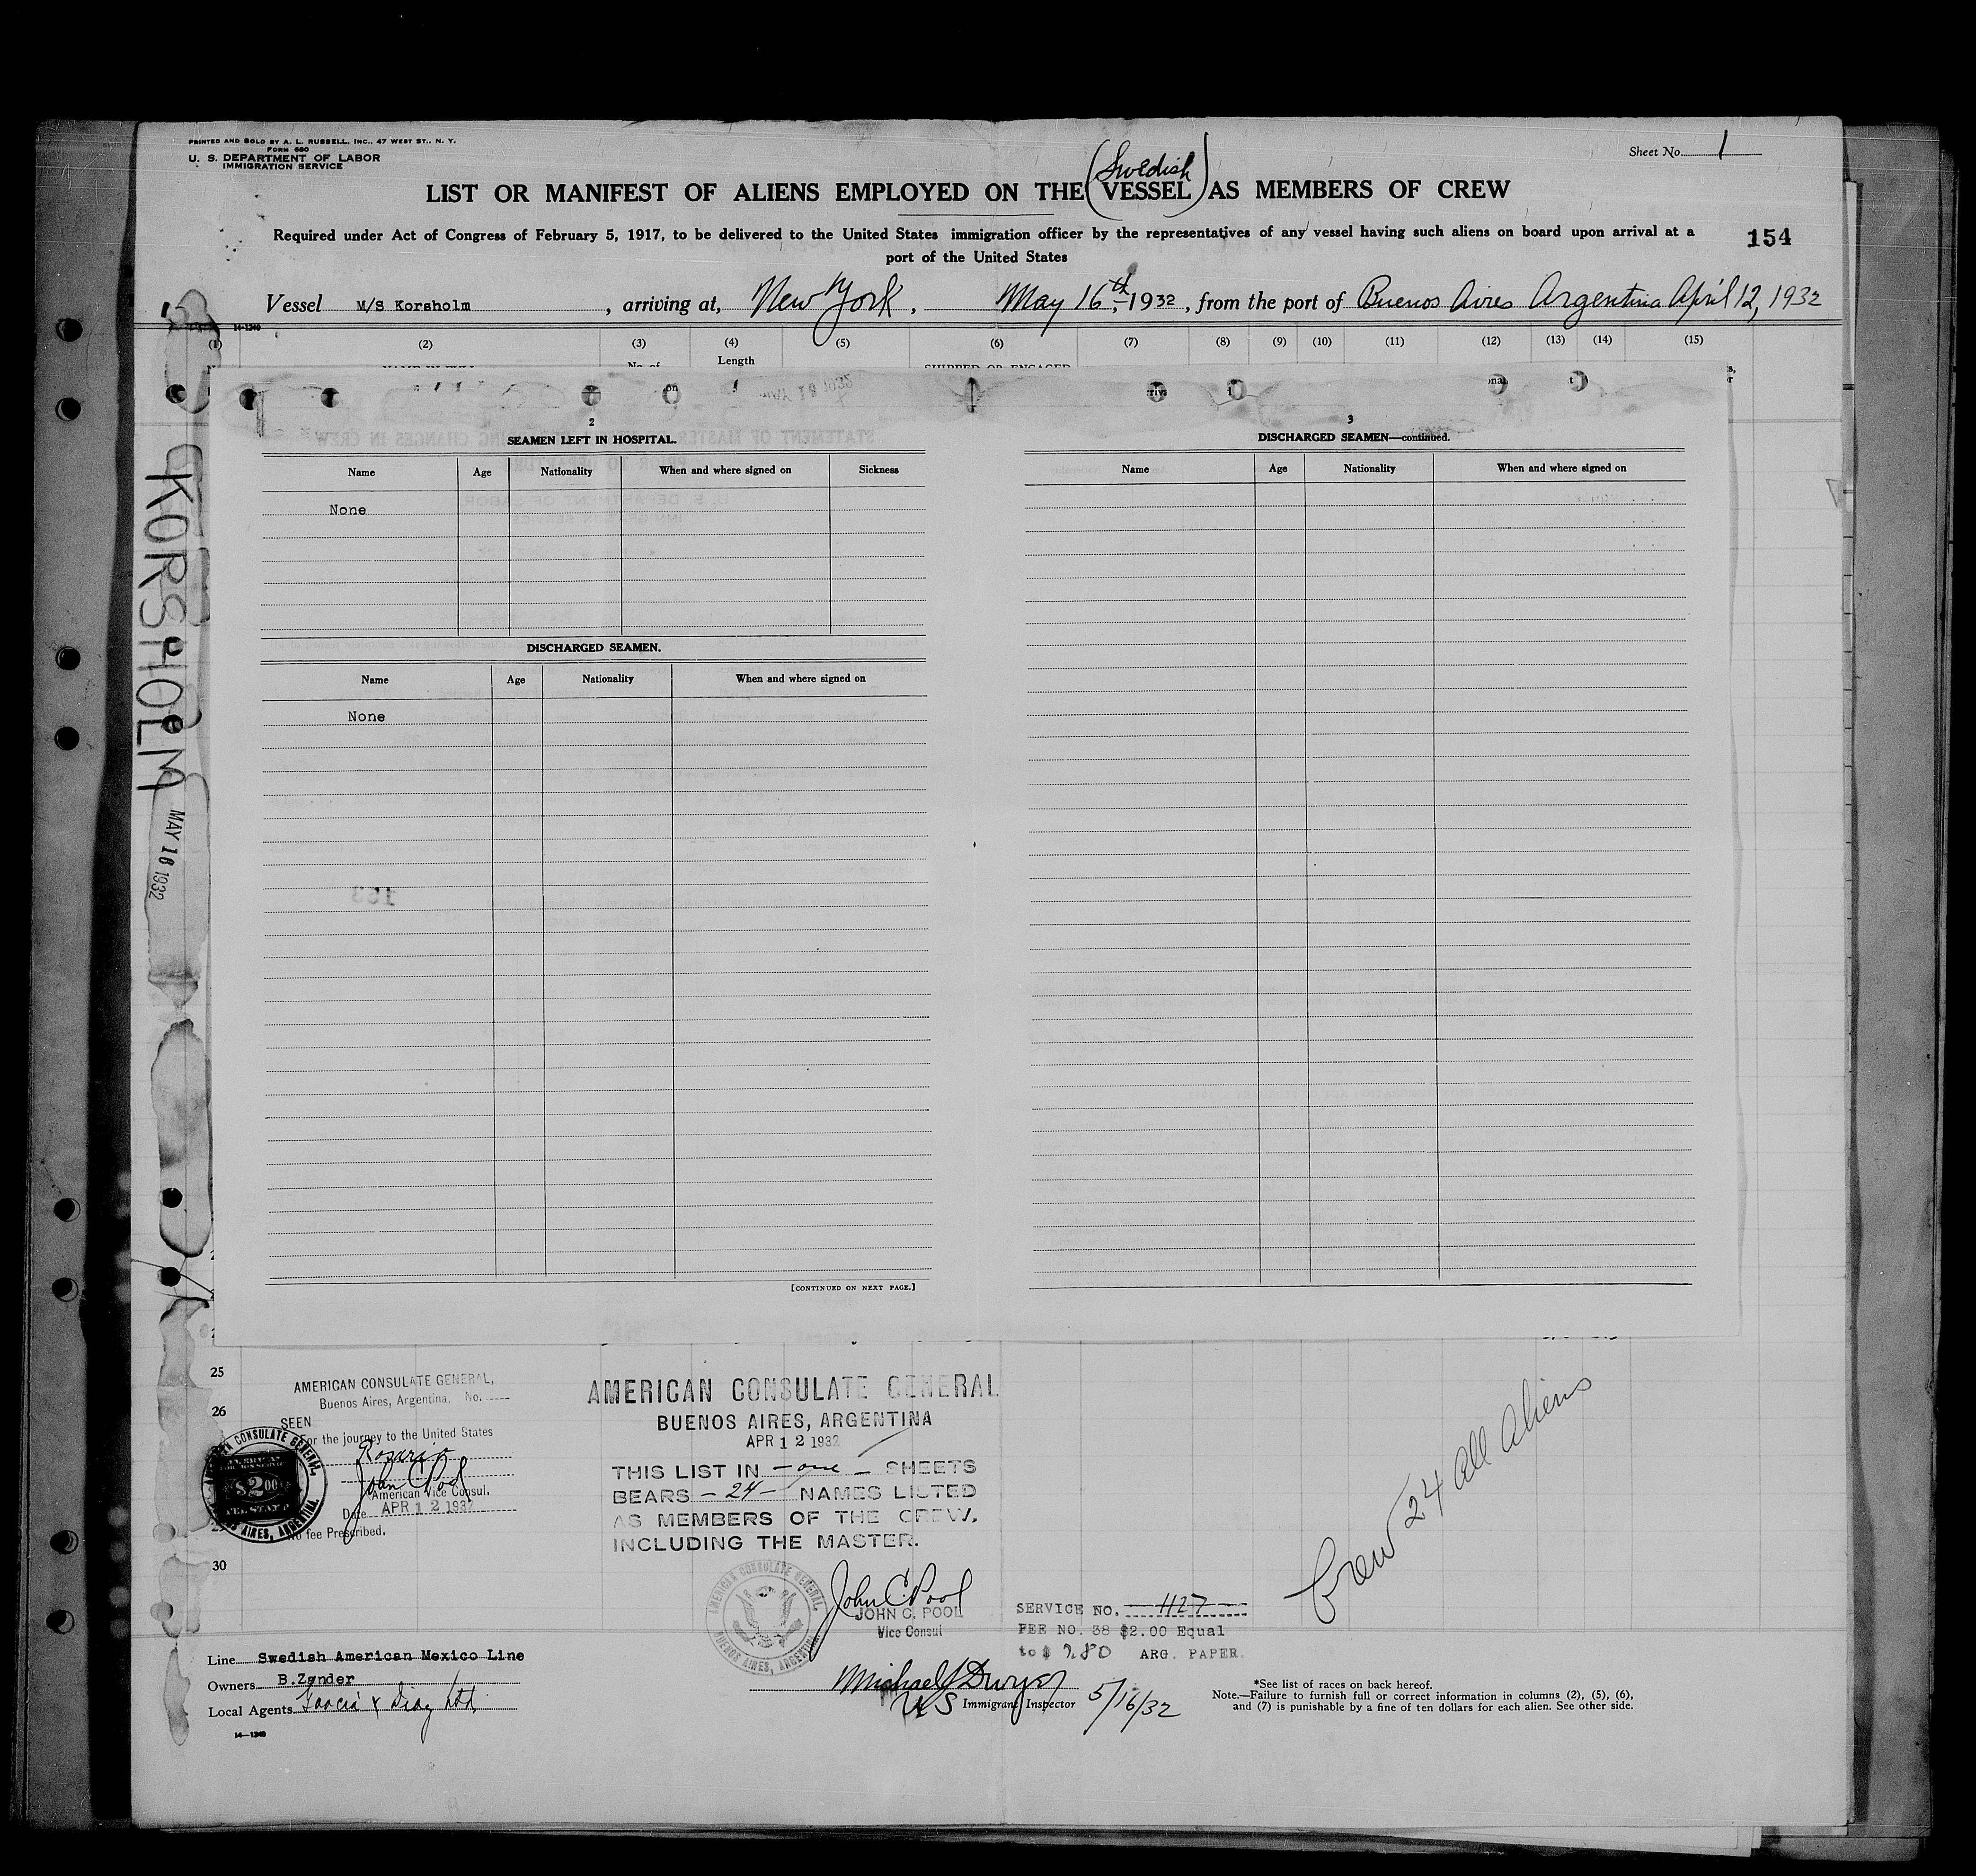 PRINTED AND SOLD BY A. L. RUSSELL, INC., 47 WEST ST., N. Y.
FORM 680
U. S. DEPARTMENT OF LABOR
IMMIGRATION SERVICE
Sheet No. 1
(Swedish)
LIST OR MANIFEST OF ALIENS EMPLOYED ON THE VESSEL AS MEMBERS OF CREW
Required under Act of Congress of February 5, 1917, to be delivered to the United States immigration officer by the representatives of any vessel having such aliens on board upon arrival at a
port of the United States
154
Vessel M/S Korsholm, arriving at, New York, May 16th, 1932, from the port of Buenos Aires Argentina April 12, 1932
14-1240
(1) (2) (3) (4) (5) (6) (7) (8) (9) (10) (11) (12) (13) (14) (15)
No. of Length SHIPPED OR ENGAGED
KORSHOLM
MAY 16 1932
2
SEAMEN LEFT IN HOSPITAL.
Name Age Nationality When and where signed on Sickness
None
DISCHARGED SEAMEN.
Name Age Nationality When and where signed on
None
[CONTINUED ON NEXT PAGE.]
3
DISCHARGED SEAMEN—continued.
Name Age Nationality When and where signed on
25
26
30
AMERICAN CONSULATE GENERAL,
Buenos Aires, Argentina. No.
SEEN
For the journey to the United States
Rosario
John C Pool
American Vice Consul.
Date APR 12 1932
No fee Prescribed.
AMERICAN CONSULATE GENERAL
BUENOS AIRES, ARGENTINA
APR 12 1932
THIS LIST IN - one - SHEETS
BEARS - 24 - NAMES LISTED
AS MEMBERS OF THE CREW,
INCLUDING THE MASTER.
AMERICAN CONSULATE GENERAL,
BUENOS AIRES, ARGENTINA
John C Pool
JOHN C. POOL
Vice Consul
SERVICE NO. 1127
FEE NO. 38 $2.00 Equal
to $ 7.80 ARG. PAPER.
Crew 24 all aliens
Line Swedish American Mexico Line
Owners B.Zander
Local Agents Garcia & Diaz Ltd
14-1240
Michael J Dwyer
US Immigrant Inspector 5/16/32
*See list of races on back hereof.
Note.—Failure to furnish full or correct information in columns (2), (5), (6),
and (7) is punishable by a fine of ten dollars for each alien. See other side.